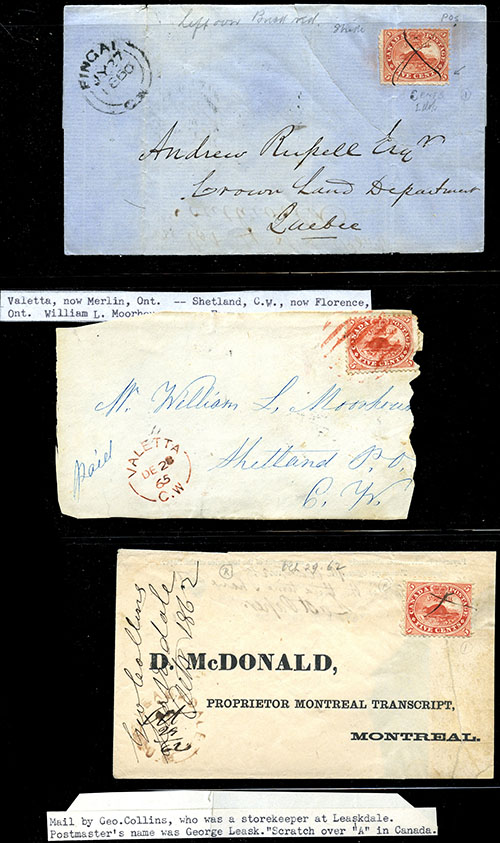 Left over
FINGAL
JY 27
1860
C.W
CANADA POSTAGE
FIVE CENTS
Andrew Russell Esqr
Crown Land Department
Quebec
Valetta, now Merlin, Ont. -- Shetland, C.W., now Florence,
Ont. William L. Moorhou
CANADA POSTAGE
FIVE CENTS
Mr. William L. Moorhous
paid
Shetland P.O.
C. W.
VALETTA
DE 28
65
C.W
Oct 29. 62
CANADA POSTAGE
FIVE CENTS
Geo Collins
Leaskdale
1862
D. McDONALD,
PROPRIETOR MONTREAL TRANSCRIPT,
MONTREAL.
Mail by Geo.Collins, who was a storekeeper at Leaskdale.
Postmaster's name was George Leask."Scratch over "A" in Canada.